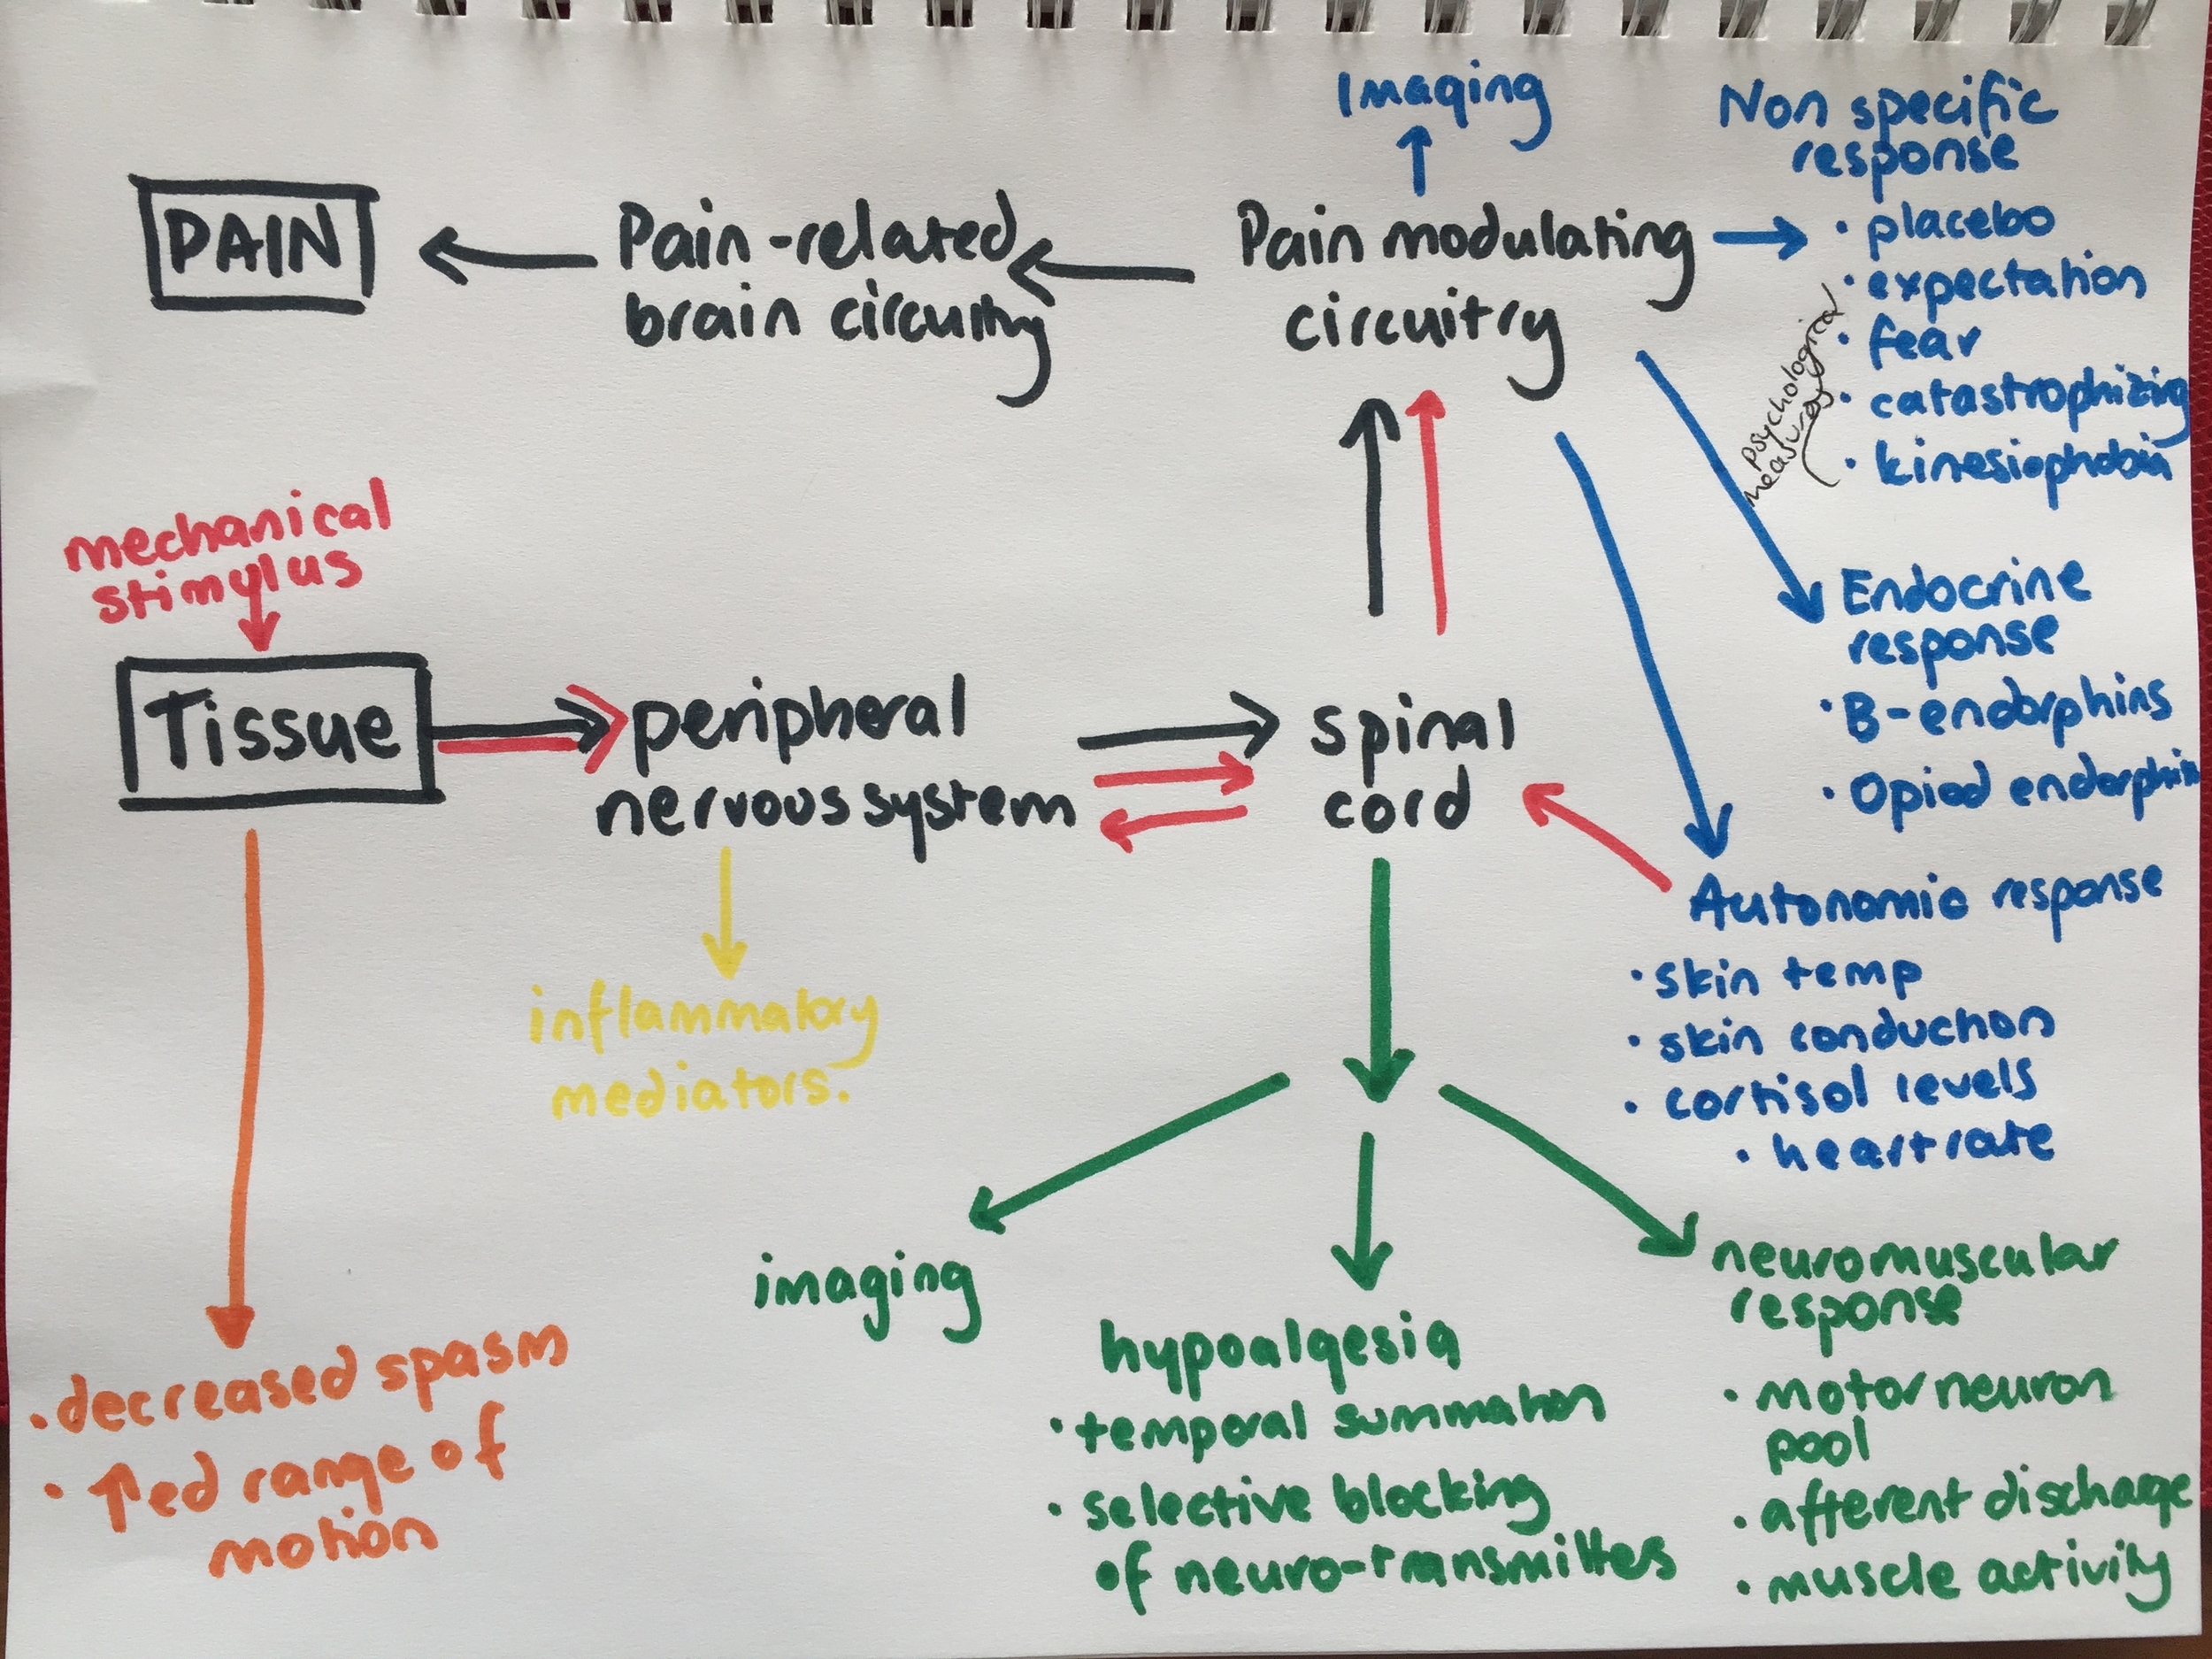 Imaging
Non specific
response
• placebo
• expectation
• fear
• catastrophizing
• kinesiophobia
psychological
measures
PAIN
Pain-related
brain circuitry
Pain modulating
circuitry
mechanical
stimulus
Tissue
peripheral
nervous system
spinal
cord
Endocrine
response
• B-endorphins
• Opiod endorphins
Autonomic response
• skin temp
• skin conduction
• cortisol levels
• heart rate
inflammatory
mediators.
• decreased spasm
• ↑ed range of
motion
imaging
hypoalgesia
• temporal summation
• selective blocking
of neuro-transmittes
neuromuscular
response
• motor neuron
pool
• afferent discharge
• muscle activity